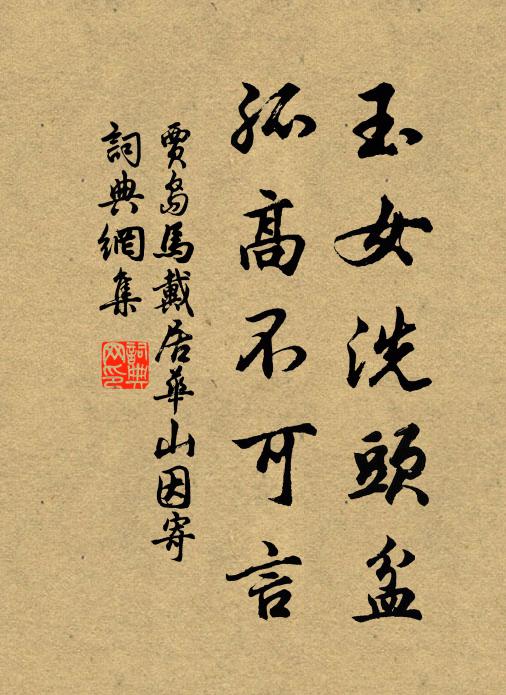 玉女洗頭盆
孤高不可言
賈島馬戴居華山因寄
詞典網集
詞典网印